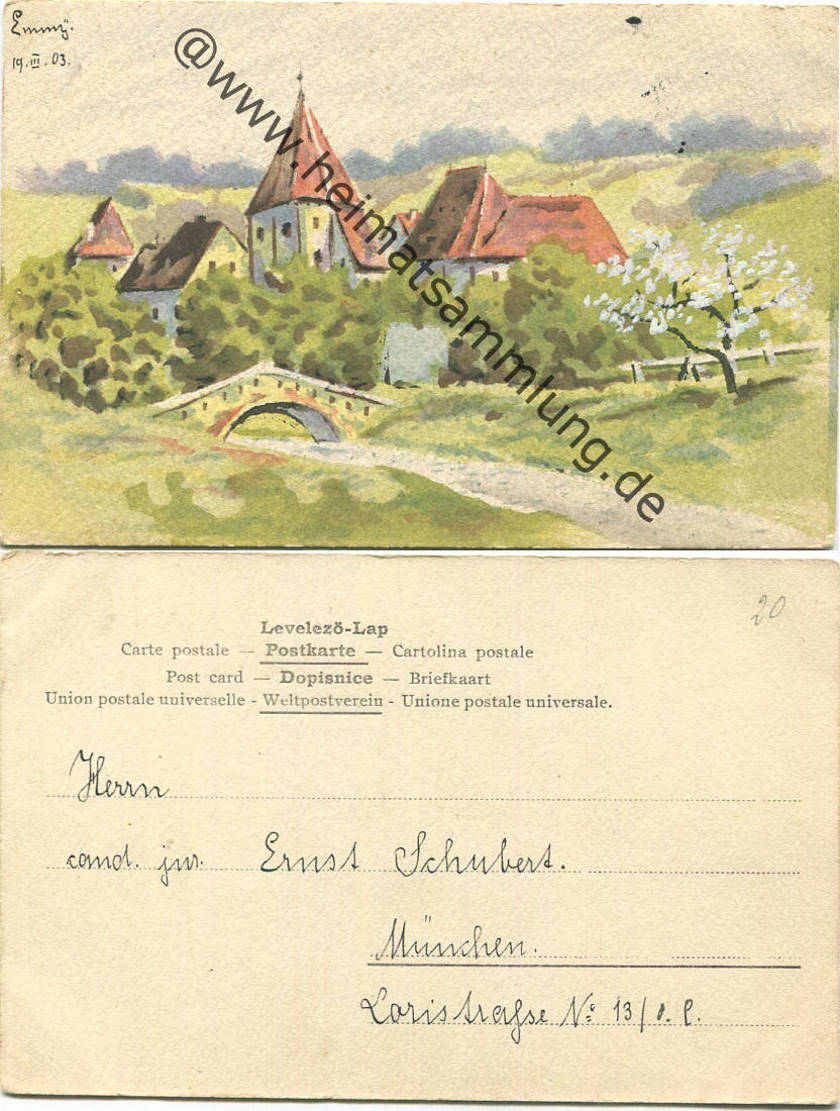 Emmy.
19.III.03.
@www.heimatsammlung.de
20
Levelezö-Lap
Carte postale — Postkarte — Cartolina postale
Post card — Dopisnice — Briefkaart
Union postale universelle - Weltpostverein - Unione postale universale.
Herrn
cand. jur. Ernst Schubert.
München.
Loristraſse No 13/0. l.